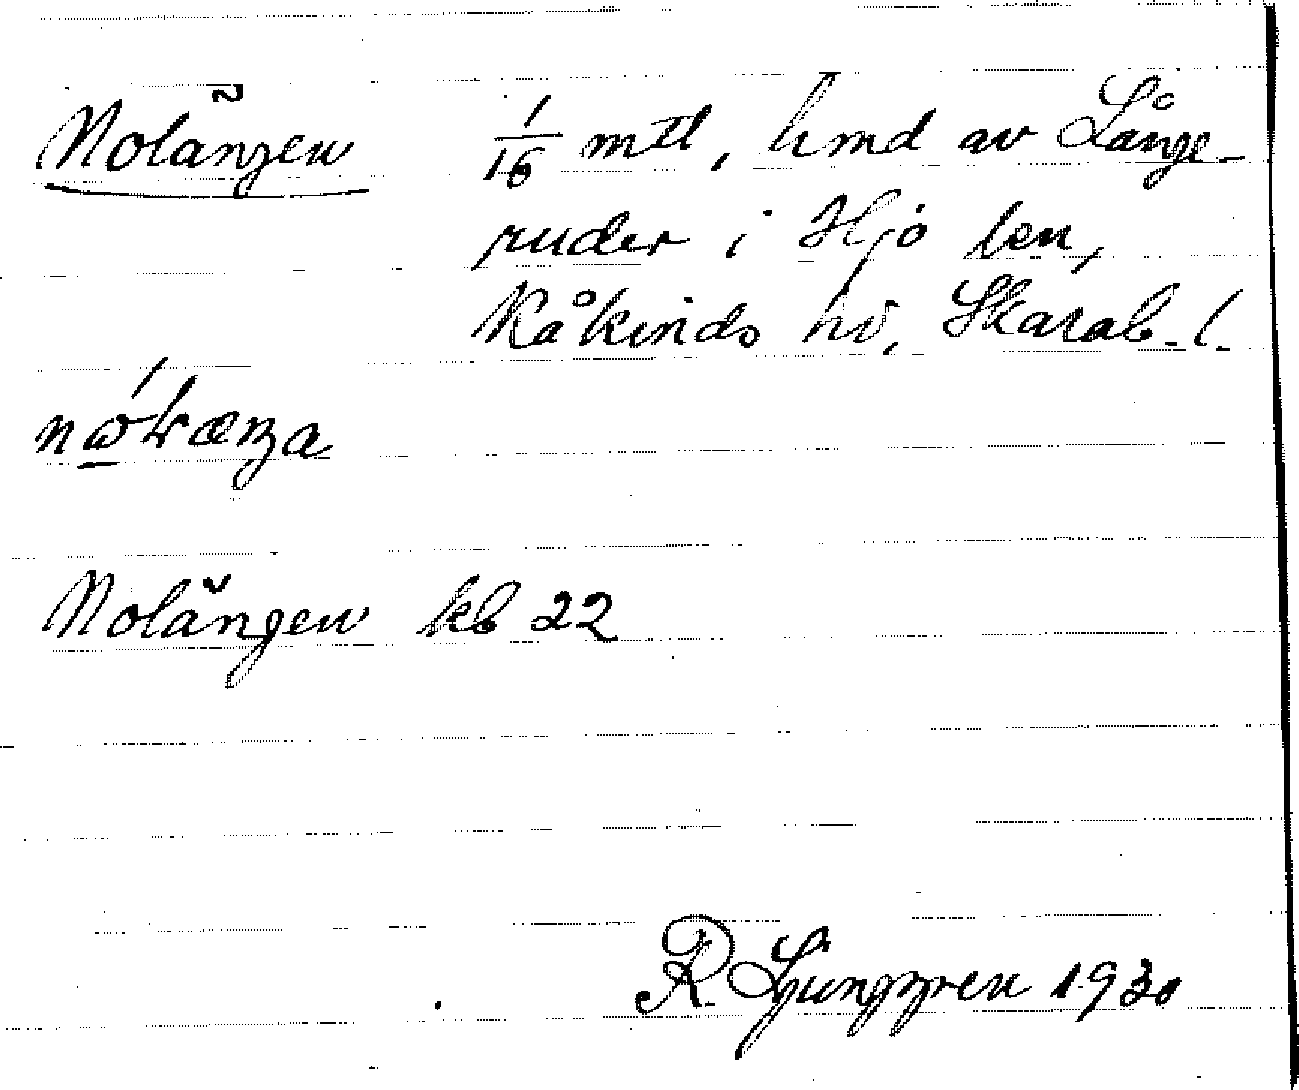 Nolängen 1/16 mtl, hmd av Långe-
ruder i Hjo len,
Kåkinds hd, Skarab. l.
Nolängen kb 22
R. Ljunggren 1930